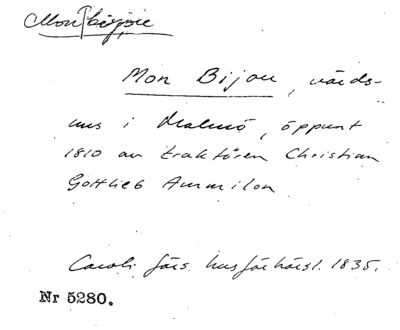 Mon bijou
Mon Bijou, värds-
hus i Malmö, öppnat
1810 av traktören Christian
Gottlieb Ammilon
Caroli förs. husförhörsl. 1835.
Nr 5280.